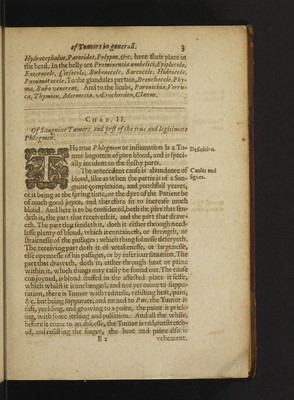 of Tumors in generall. 3
Hydrocephalus, Parotides, Polypus, &c. have their place in
the head. In the belly are Prominentia umbelici, Epiplocele,
Enterocele, Bubonocele, Sarcocele, Hidrocele,
Pneumatocele. To the glandules pertain, Bronchocele, Phy-
ma, Bubo venereus. And to the limbs, Paronichia, Verru-
ca, Thymion, Clavus.
CHAP. II.
Of Sanguine Tumors, and first of the true and legitimate
Phlegmon.
THe true Phlegmon or inflamation is a Tu-
mor begotten of pure bloud, and is speci-
ally incident to the fleshy parts.
Definition.
The antecedent cause is abundance of
bloud, like as when the partie is of a San-
guine complexion, and youthfull yeares,
or it being at the spring time, or the dyet of the Patient be
of much good juyce, and therefore fit to increase much
bloud. And here is to be considered, both the part that sen-
deth it, the part that receiveth it, and the part that draw-
eth. The part that sendeth it, doth it either through need-
lesse plenty of bloud, which it containeth, or through
straitnesse of the passages: which thing sidewise deferyeth.
The receiving part doth it of weaknesse, or largenesse,
else opennesse of his passages, or by inferiour situation. The
part that draweth, doth it, either through heat or paine
within it, which things may easily be found out. The cause
conjoyned, is bloud stuffed in the affected place it selfe,
which whilst it is unchanged, and not yet come to suppu-
ration, there is Tumor with rednesse, resisting heat, pain,
&c. but being suppurate, and turned to Pus, the Tumor is
soft, yeelding, and growing to a point, the paine is prick-
ing, with some itching and pulsation. And all the while,
before it come to an abscesse, the Tumor is red, outstretch-
ed, and resisting the finger, the heat and paine also is
Causes and
signes.
B 2 vehement.